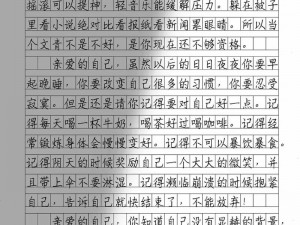 摇滚可以提神，轻音乐能缓解压力。躲在被子
里看小说绝对比看报纸看新闻累眼睛。所以当
个文青不是不好，是你现在还不够资格。
亲爱的自己，虽然以后的日日夜夜你要早
起晚睡，你要改变自己很多的习惯，你要忍受
寂寞。但是还是请你记得要对自己好一点。记
得每天喝一杯牛奶，喝茶好过喝咖啡。记得经
常锻炼身体会慢慢变好。记得不可以暴饮暴食。
记得阴天的时候奖励自己一个大大的微笑，并
且带上伞不要淋湿。记得濒临崩溃的时候抱紧
自己，告诉自己就快结束了，不能放弃！
亲爱的自己，你知道自己没有显赫的背景，